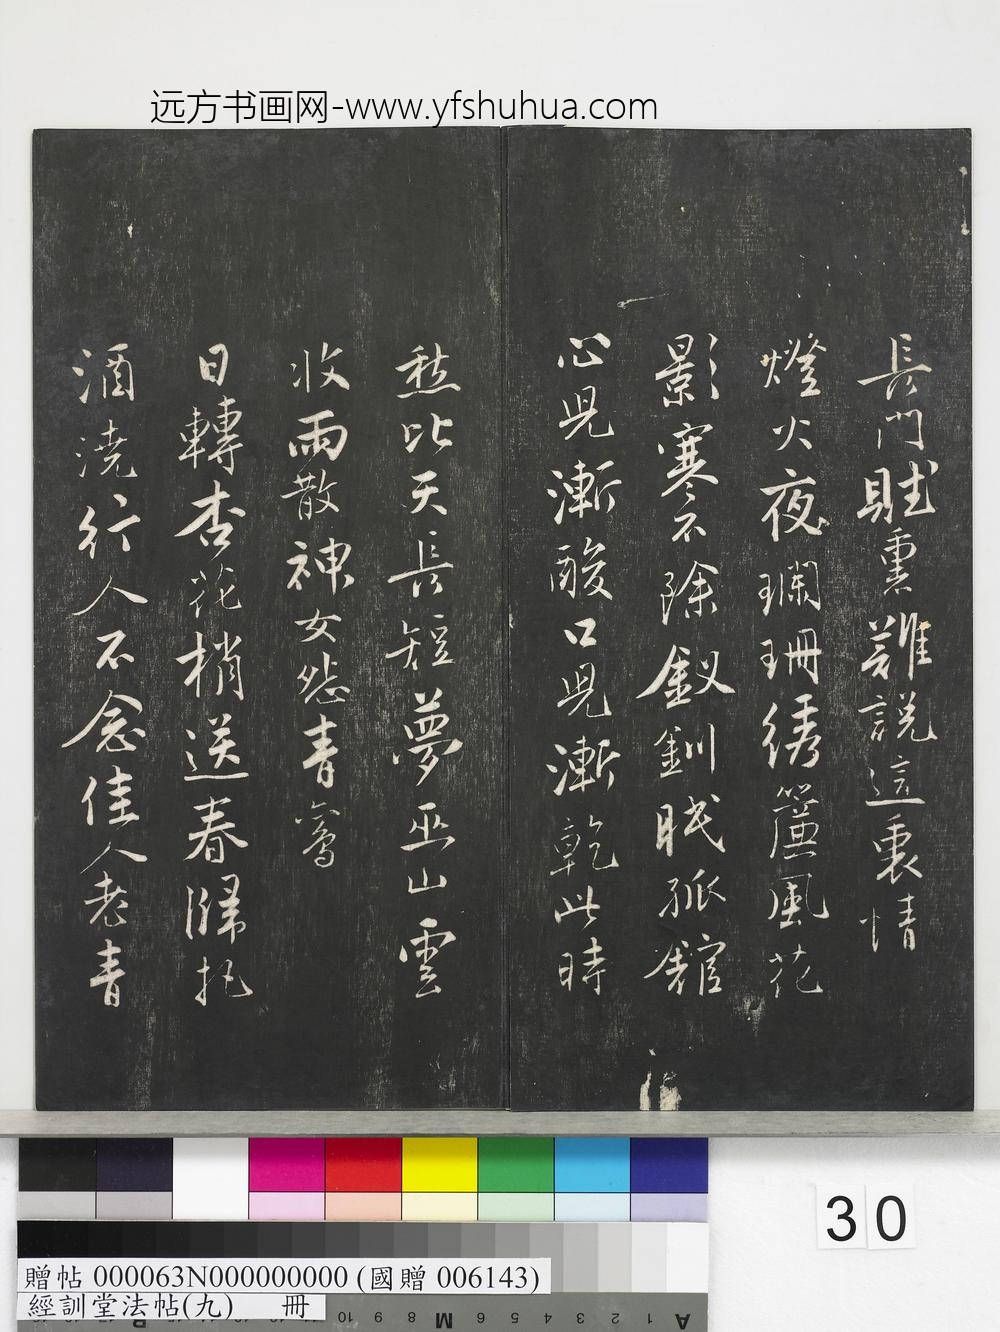 远方书画网-www.yfshuhua.com
長門賦熏難說這裏情
燈火夜瓓珊綉簾風花
影寒不除釵釧眠孤館
心兒漸酸口兒漸乾此時
愁比天長短夢巫山雲
收雨散神女怨青鸞
日轉杏花梢送春歸執
酒澆行人不念佳人老青
30
贈帖 000063N000000000 (國贈 006143)
經訓堂法帖(九) 冊
R 10 9 8 7 6 M 5 4 3 2 1 A